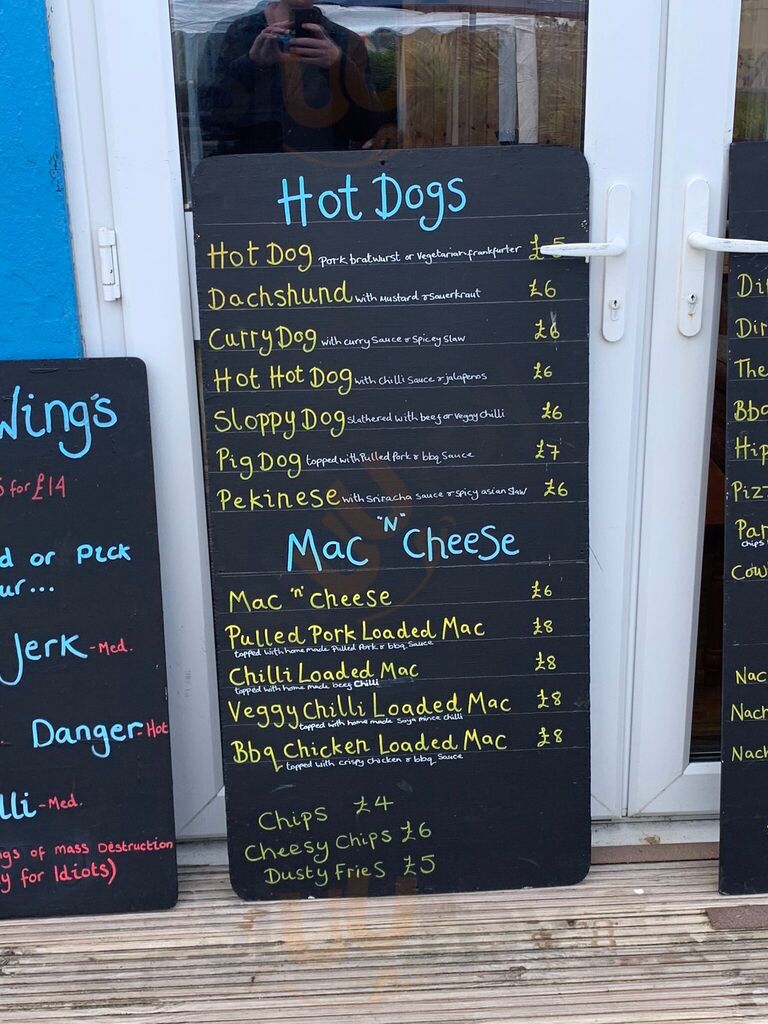 Wing's
for £14
or Pick
ur...
Jerk - Med.
Danger - Hot
lli - Med.
gs of mass Destruction
y for Idiots)
Hot Dogs
Hot Dog Pork bratwurst or Vegetarian frankfurter £5
Dachshund with Mustard & Sauerkraut £6
Curry Dog with curry Sauce & Spicey Slaw £6
Hot Hot Dog with Chilli Sauce & jalapenos £6
Sloppy Dog slathered with beef or Veggy Chilli £6
Pig Dog topped with Pulled Pork & bbq Sauce £7
Pekinese with Sriracha Sauce & Spicy asian Slaw £6
Mac "N" Cheese
Mac "n" Cheese £6
Pulled Pork Loaded Mac £8
topped with home made Pulled Pork & bbq Sauce
Chilli Loaded Mac £8
topped with home made beef Chilli
Veggy Chilli Loaded Mac £8
topped with home made Soya mince chilli
Bbq Chicken Loaded Mac £8
topped with crispy chicken & bbq Sauce
Chips £4
Cheesy Chips £6
Dusty Fries £5
Dir
The
Bbq
Hip
Pizz
Par
Chips
Cow
Nac
Nach
Nach